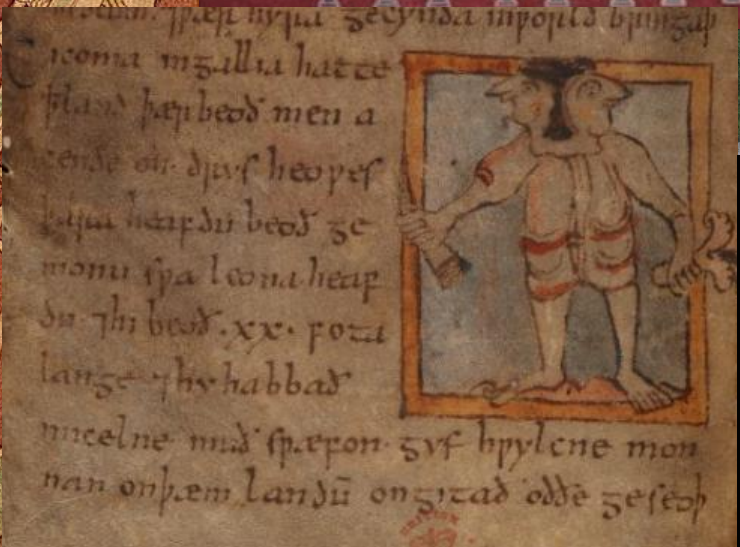 þær hyra gecynda in ƿoruld bringaþ
Ciconia in gallia hatte
ꝥ land þær beoð men a
cende on drys heoƿes
þara heafdu beoð ge
monu sƿa leona heaf
du ⁊ hi beoð .xx. fota
lange ⁊ hy habbað
micelne muð sƿa fon gyf hƿylcne mon
nan on þæm landū ongitað oððe geseoþ